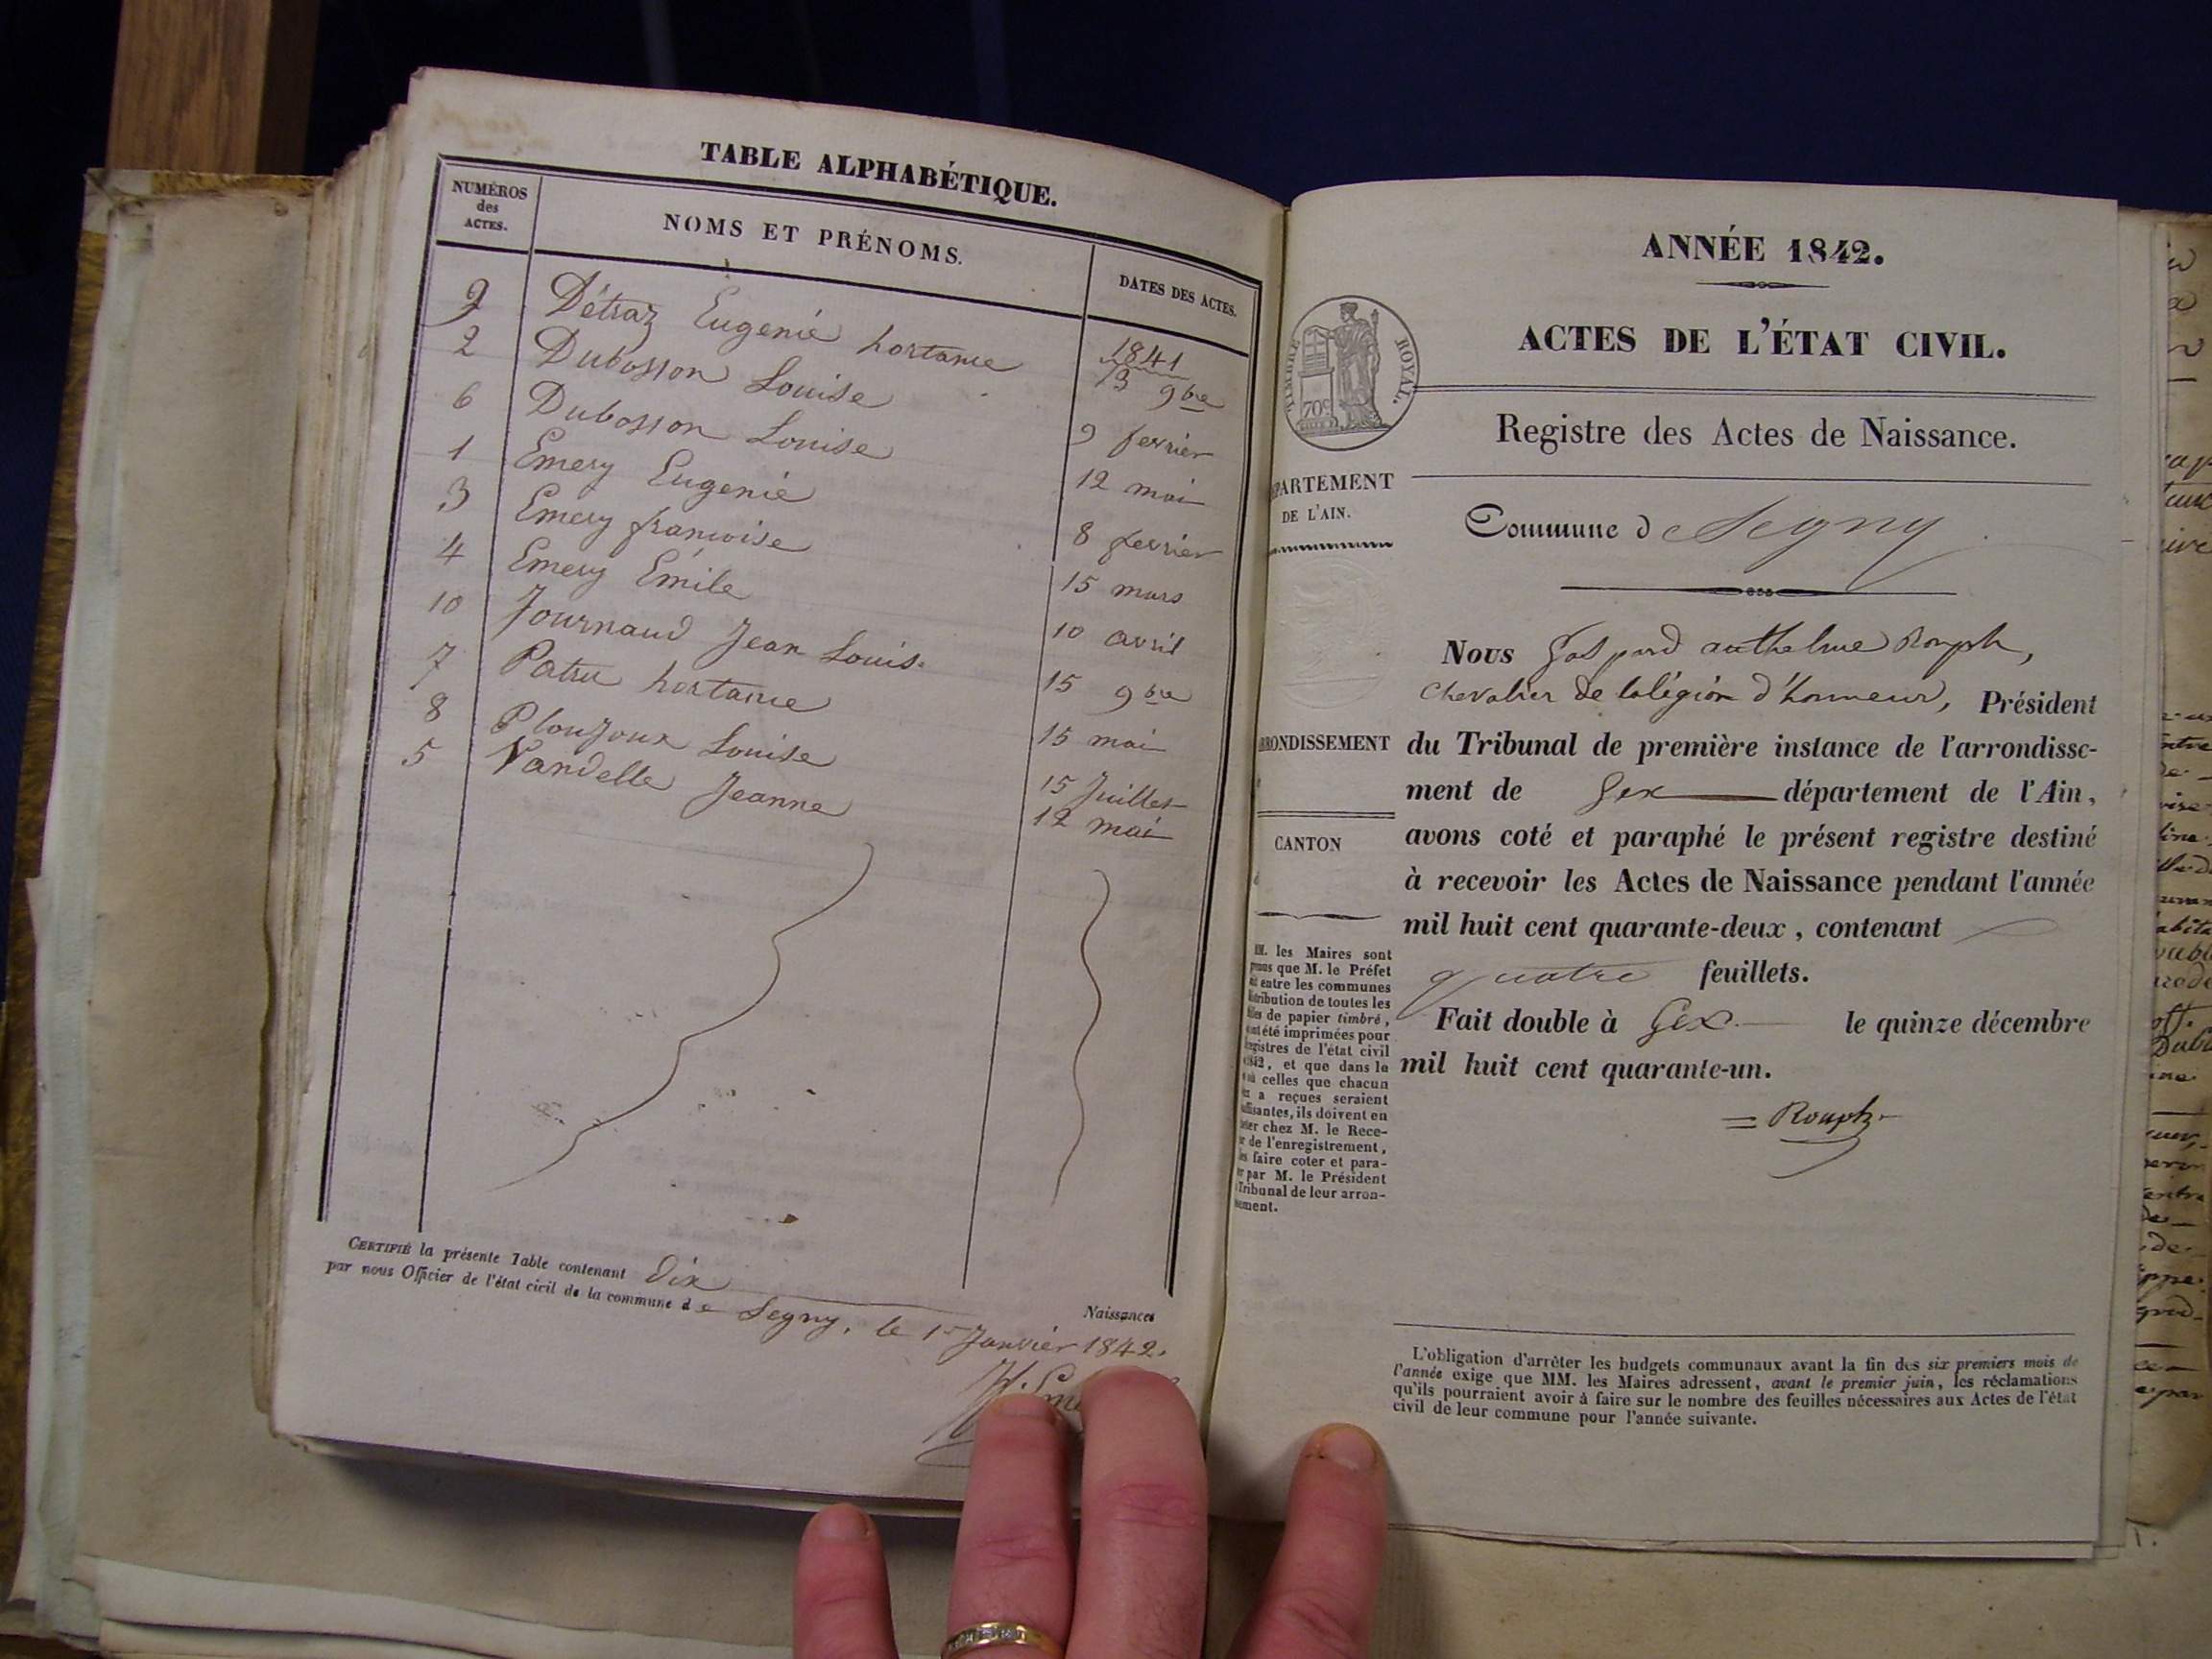 TABLE ALPHABÉTIQUE.
NUMÉROS des ACTES.
NOMS ET PRÉNOMS.
DATES DES ACTES.
1841
9 Détraz Eugenie hortance 13 9bre
2 Dubosson Louise 9 fevrier
6 Dubosson Louise 12 mai
1 Emery Eugenie 8 fevrier
3 Emery francoise 15 mars
4 Emery Emile 10 avril
10 Journaud Jean Louis. 15 9bre
7 Patru hortance 15 mai
8 Ploujoux Louise 15 Juillet
5 Vandelle Jeanne 12 mai
CERTIFIÉ la présente Table contenant dix Naissances
par nous Officier de l'état civil de la commune de Segny, le 1er Janvier 1842.
ANNÉE 1842.
ACTES DE L'ÉTAT CIVIL.
TIMBRE ROYAL.
70c
Registre des Actes de Naissance.
PARTEMENT
DE L'AIN.
Commune de Segny
Nous Gaspard anthelme Rouph,
Chevalier de la légion d'honneur, Président
RONDISSEMENT
du Tribunal de première instance de l'arrondisse-
ment de Gex département de l'Ain,
CANTON
avons coté et paraphé le présent registre destiné
à recevoir les Actes de Naissance pendant l'année
mil huit cent quarante-deux, contenant
quatre feuillets.
Fait double à Gex le quinze décembre
mil huit cent quarante-un.
Rouph
MM. les Maires sont
que M. le Préfet
entre les communes
tribution de toutes les
de papier timbré,
ont été imprimées pour
registres de l'état civil
1842, et que dans le
où celles que chacun
a reçues seraient
ffisantes, ils doivent en
chez M. le Rece-
de l'enregistrement,
les faire coter et para-
par M. le Président
Tribunal de leur arron-
sement.
L'obligation d'arrêter les budgets communaux avant la fin des six premiers mois de
l'année exige que MM. les Maires adressent, avant le premier juin, les réclamations
qu'ils pourraient avoir à faire sur le nombre des feuilles nécessaires aux Actes de l'état
civil de leur commune pour l'année suivante.